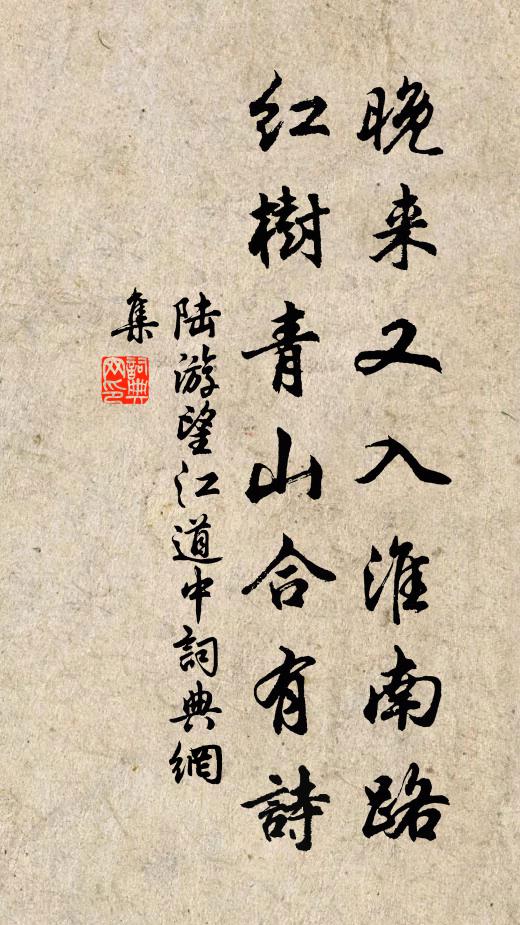 晚来又入淮南路
红樹青山合有詩
陆游望江道中詞典網
集
詞典
网印